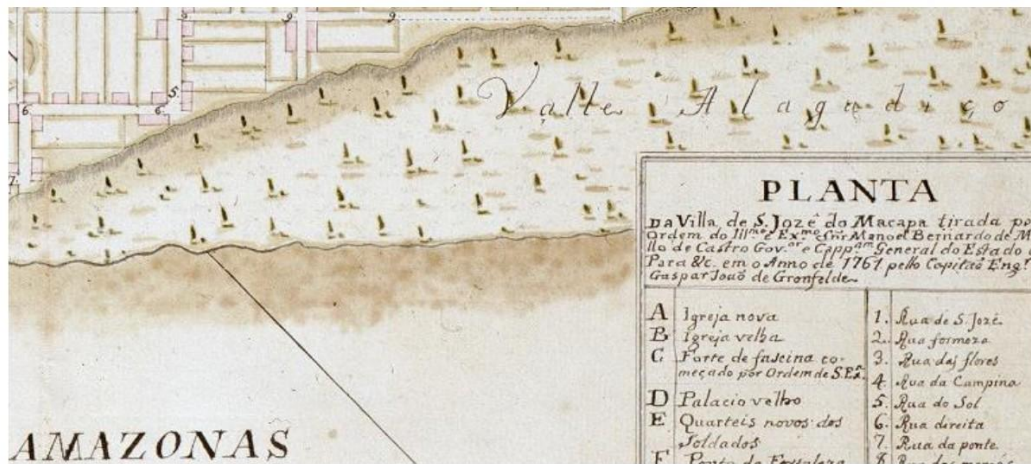 9.
9.
5.
6
6.
7.
Valle Alagadiço
AMAZONAS
PLANTA
DA Villa de S. Jozê do Macapa tirada
Ordem do Ill.mo e Ex.mo Snr Manoel Bernardo de M
llo de Castro Gov.or e Capp.am General do Estado
Para &c. em o Anno de 1761 pello Capitaõ Eng.
Gaspar Joaõ de Gronfelde
A Igreja nova
B Igreja velha
C Forte de fascina co-
meçado por Ordem de S. Ex.a
D Palacio velho
E Quarteis novos dos
Soldados
F Ponta da Fortaleza
1. Rua de S. Jozê
2. Rua formoza
3. Rua das flores
4 Rua da Campina
5. Rua do Sol
6. Rua direita
7. Rua da ponte
8 Rua